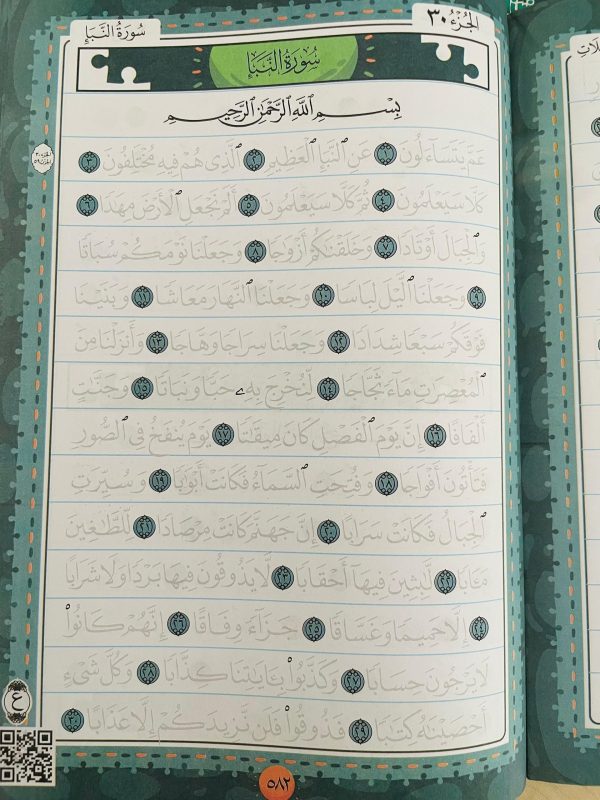 الجُزْءُ ٣٠
سُورَةُ النَّبَإِ
سُورَةُ النَّبَإِ
بِسْمِ ٱللَّهِ ٱلرَّحْمَٰنِ ٱلرَّحِيمِ
عَمَّ يَتَسَآءَلُونَ ١ عَنِ ٱلنَّبَإِ ٱلْعَظِيمِ ٢ ٱلَّذِى هُمْ فِيهِ مُخْتَلِفُونَ ٣
كَلَّا سَيَعْلَمُونَ ٤ ثُمَّ كَلَّا سَيَعْلَمُونَ ٥ أَلَمْ نَجْعَلِ ٱلْأَرْضَ مِهَٰدًا ٦
وَٱلْجِبَالَ أَوْتَادًا ٧ وَخَلَقْنَٰكُمْ أَزْوَٰجًا ٨ وَجَعَلْنَا نَوْمَكُمْ سُبَاتًا
٩ وَجَعَلْنَا ٱلَّيْلَ لِبَاسًا ١٠ وَجَعَلْنَا ٱلنَّهَارَ مَعَاشًا ١١ وَبَنَيْنَا
فَوْقَكُمْ سَبْعًا شِدَادًا ١٢ وَجَعَلْنَا سِرَاجًا وَهَّاجًا ١٣ وَأَنزَلْنَا مِنَ
ٱلْمُعْصِرَٰتِ مَآءً ثَجَّاجًا ١٤ لِّنُخْرِجَ بِهِۦ حَبًّا وَنَبَاتًا ١٥ وَجَنَّٰتٍ
أَلْفَافًا ١٦ إِنَّ يَوْمَ ٱلْفَصْلِ كَانَ مِيقَٰتًا ١٧ يَوْمَ يُنفَخُ فِى ٱلصُّورِ
فَتَأْتُونَ أَفْوَاجًا ١٨ وَفُتِحَتِ ٱلسَّمَآءُ فَكَانَتْ أَبْوَٰبًا ١٩ وَسُيِّرَتِ
ٱلْجِبَالُ فَكَانَتْ سَرَابًا ٢٠ إِنَّ جَهَنَّمَ كَانَتْ مِرْصَادًا ٢١ لِّلطَّٰغِينَ
مَـَٔابًا ٢٢ لَّٰبِثِينَ فِيهَآ أَحْقَابًا ٢٣ لَّا يَذُوقُونَ فِيهَا بَرْدًا وَلَا شَرَابًا
٢٤ إِلَّا حَمِيمًا وَغَسَّاقًا ٢٥ جَزَآءً وِفَاقًا ٢٦ إِنَّهُمْ كَانُوا۟
لَا يَرْجُونَ حِسَابًا ٢٧ وَكَذَّبُوا۟ بِـَٔايَٰتِنَا كِذَّابًا ٢٨ وَكُلَّ شَىْءٍ
أَحْصَيْنَٰهُ كِتَٰبًا ٢٩ فَذُوقُوا۟ فَلَن نَّزِيدَكُمْ إِلَّا عَذَابًا ٣٠
ع
٥٨٢